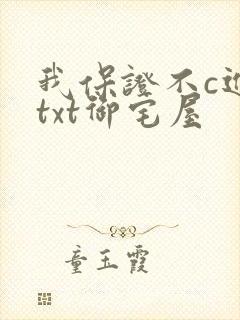 我保證不c进
txt御宅屋
童玉霞